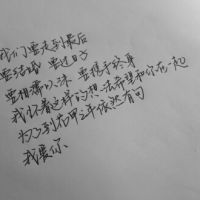 我们要走到最后
要结婚 要过日子
要相濡以沫 要携手终身
我怀着这样的想法希望和你在一起
为了到右甲之年依然有句
我爱你